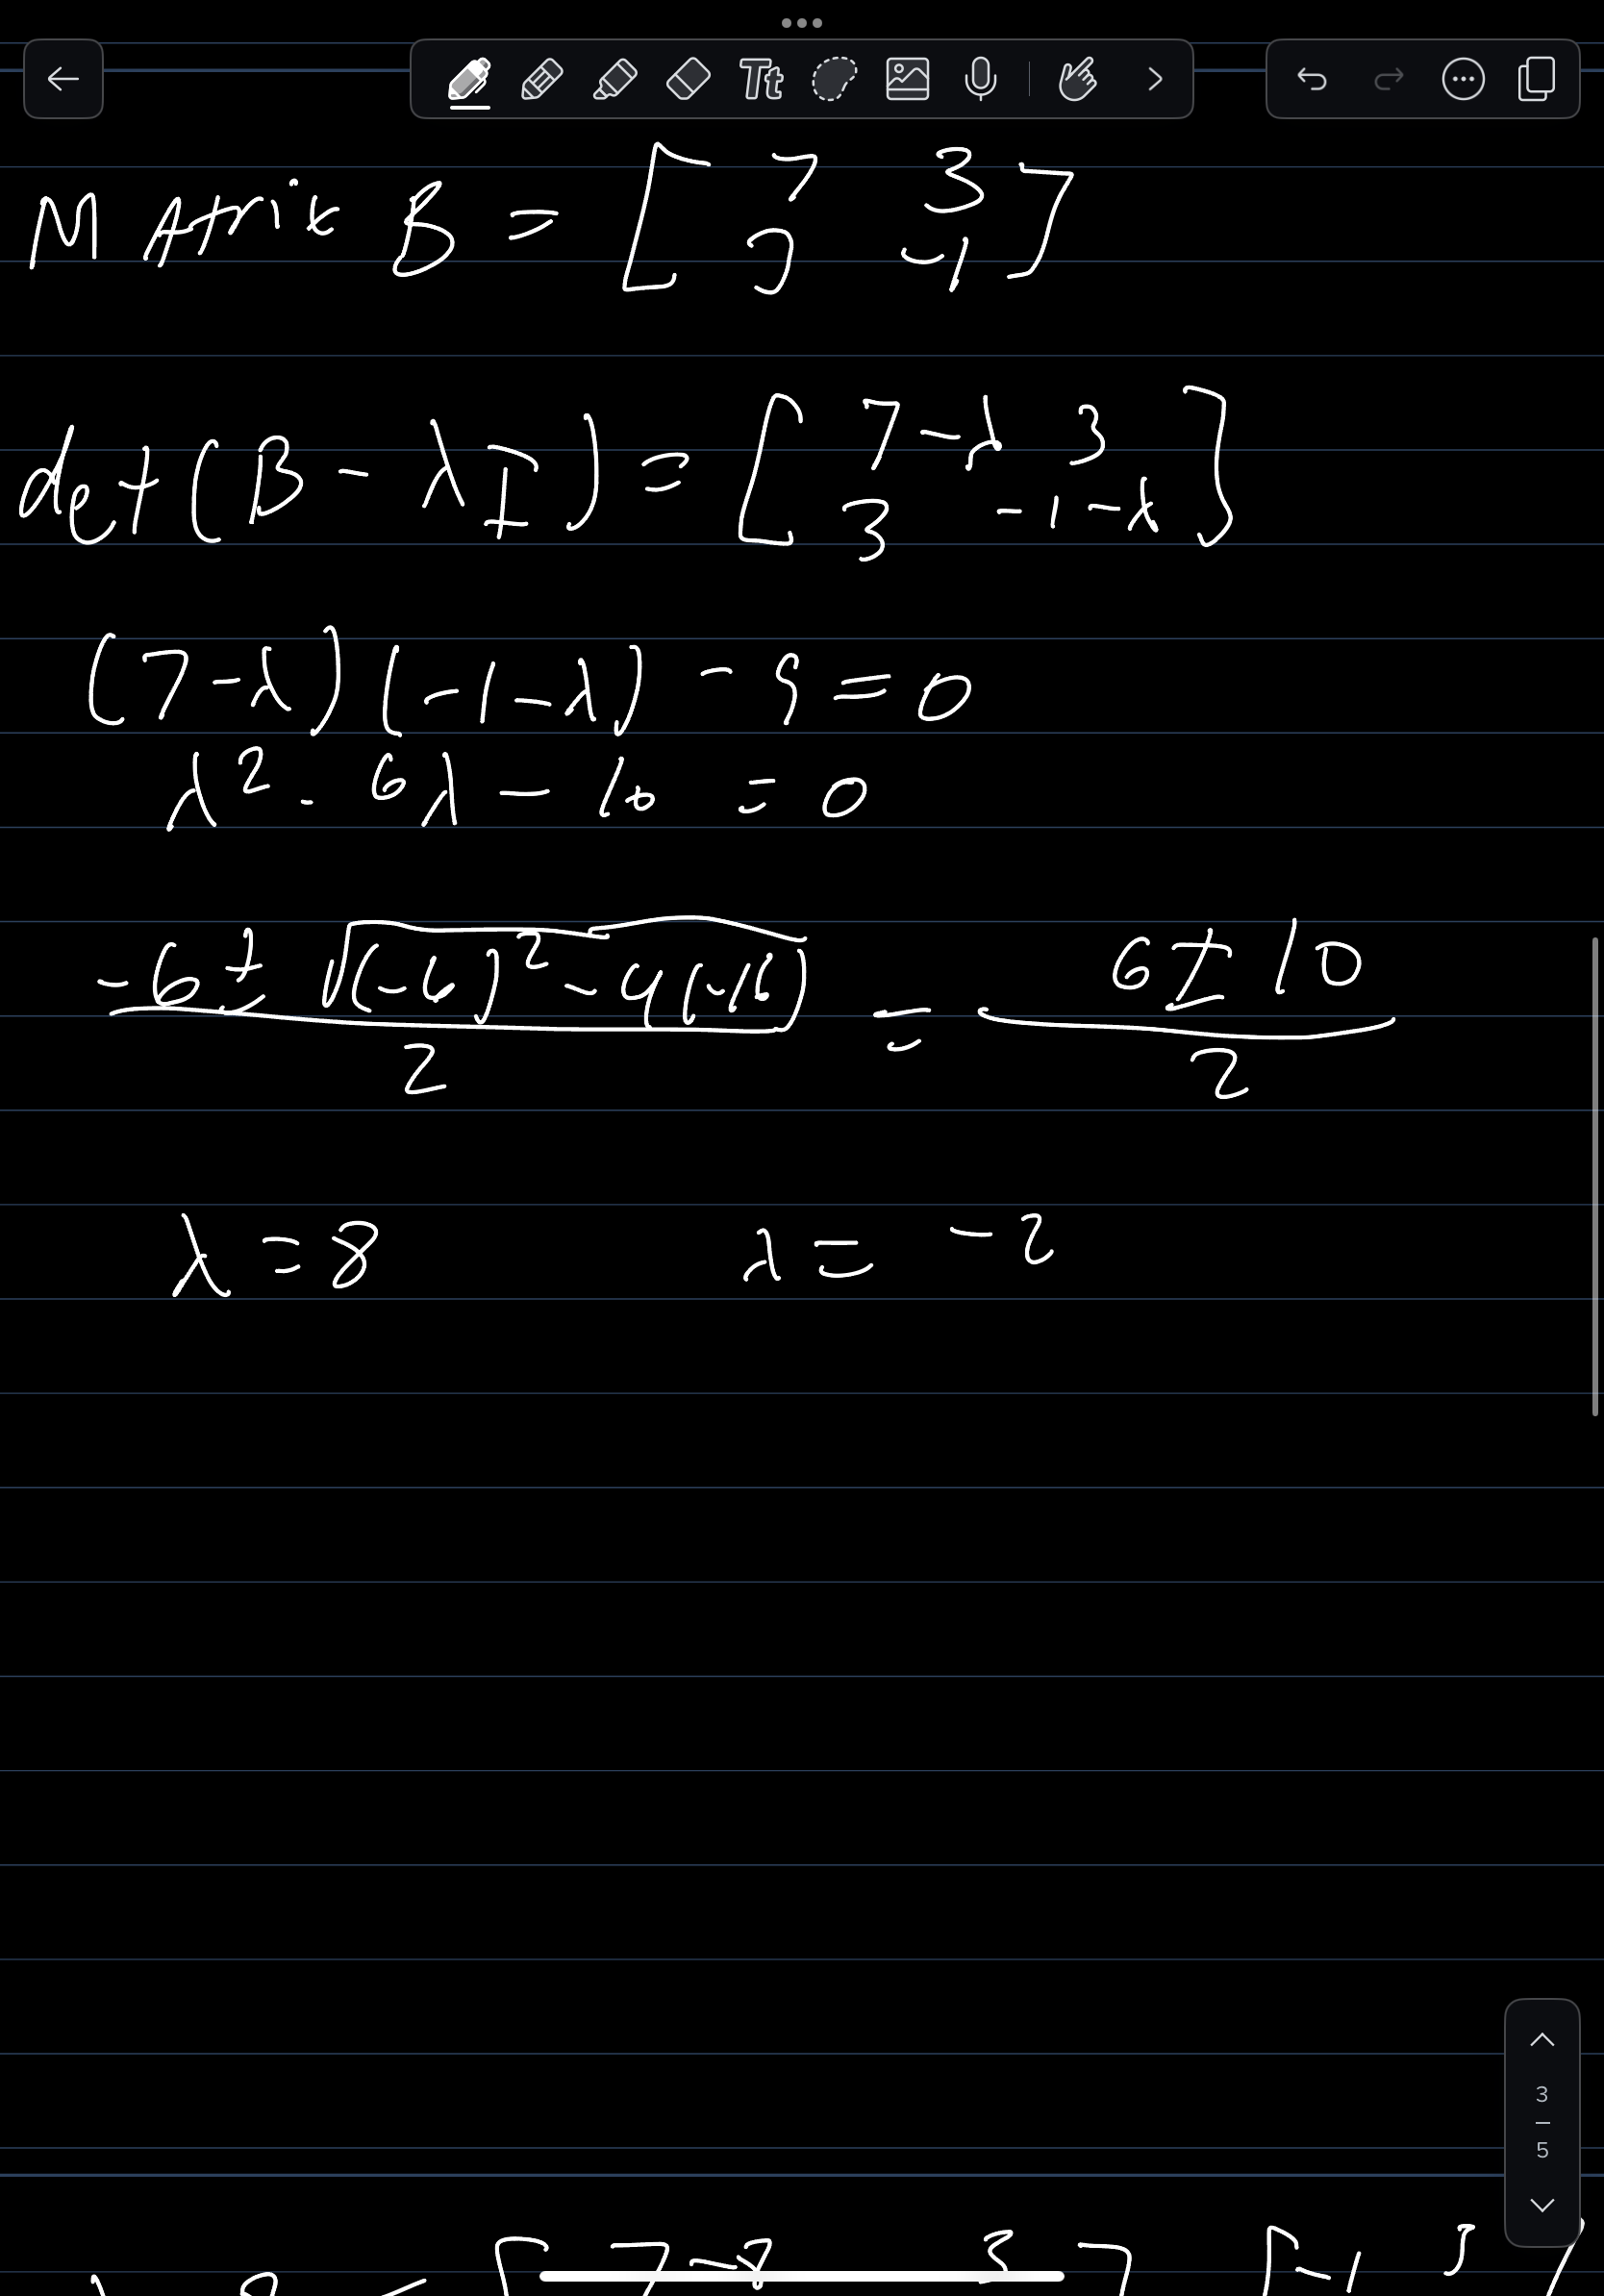 Tt
MAtrix B = [ 7 3
3 -1 ]
det(B - λI) = [ 7-λ 3
3 -1-λ ]
(7-λ)(-1-λ) - 9 = 0
λ² - 6λ - 16 = 0
-6 ± √(-6)² - 4(-16) / 2 = 6 ± 10 / 2
λ = 8 λ = -2
3
5
7-8 3 ] [ -1 3